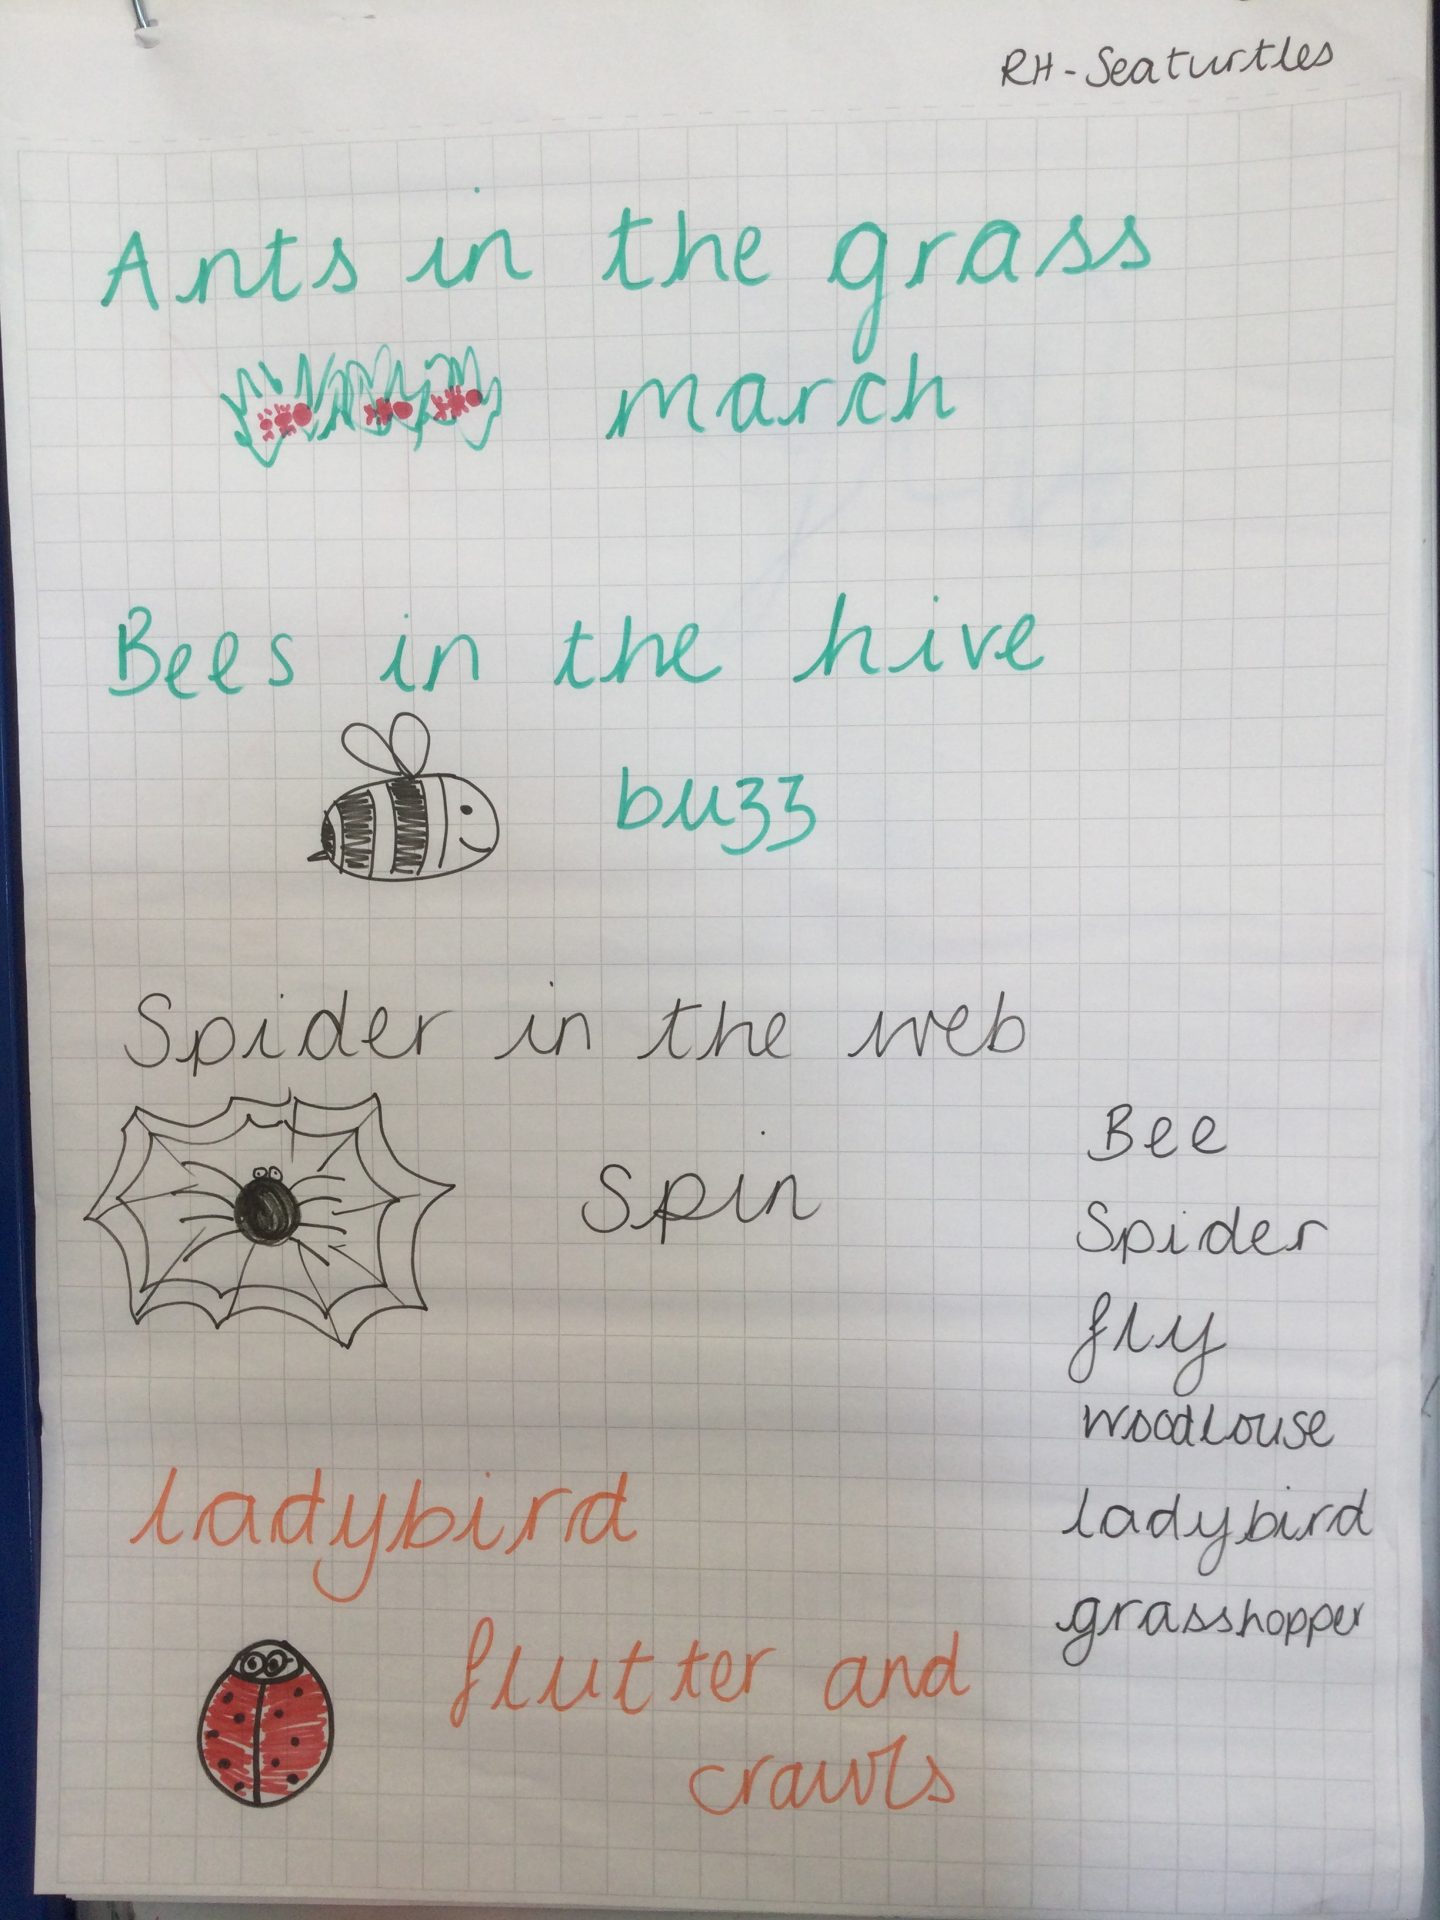 RH - Seaturtles
Ants in the grass
march
Bees in the hive
buzz
Spider in the web
Spin
Bee
Spider
fly
woodlouse
ladybird
grasshopper
ladybird
flutter and
crawls